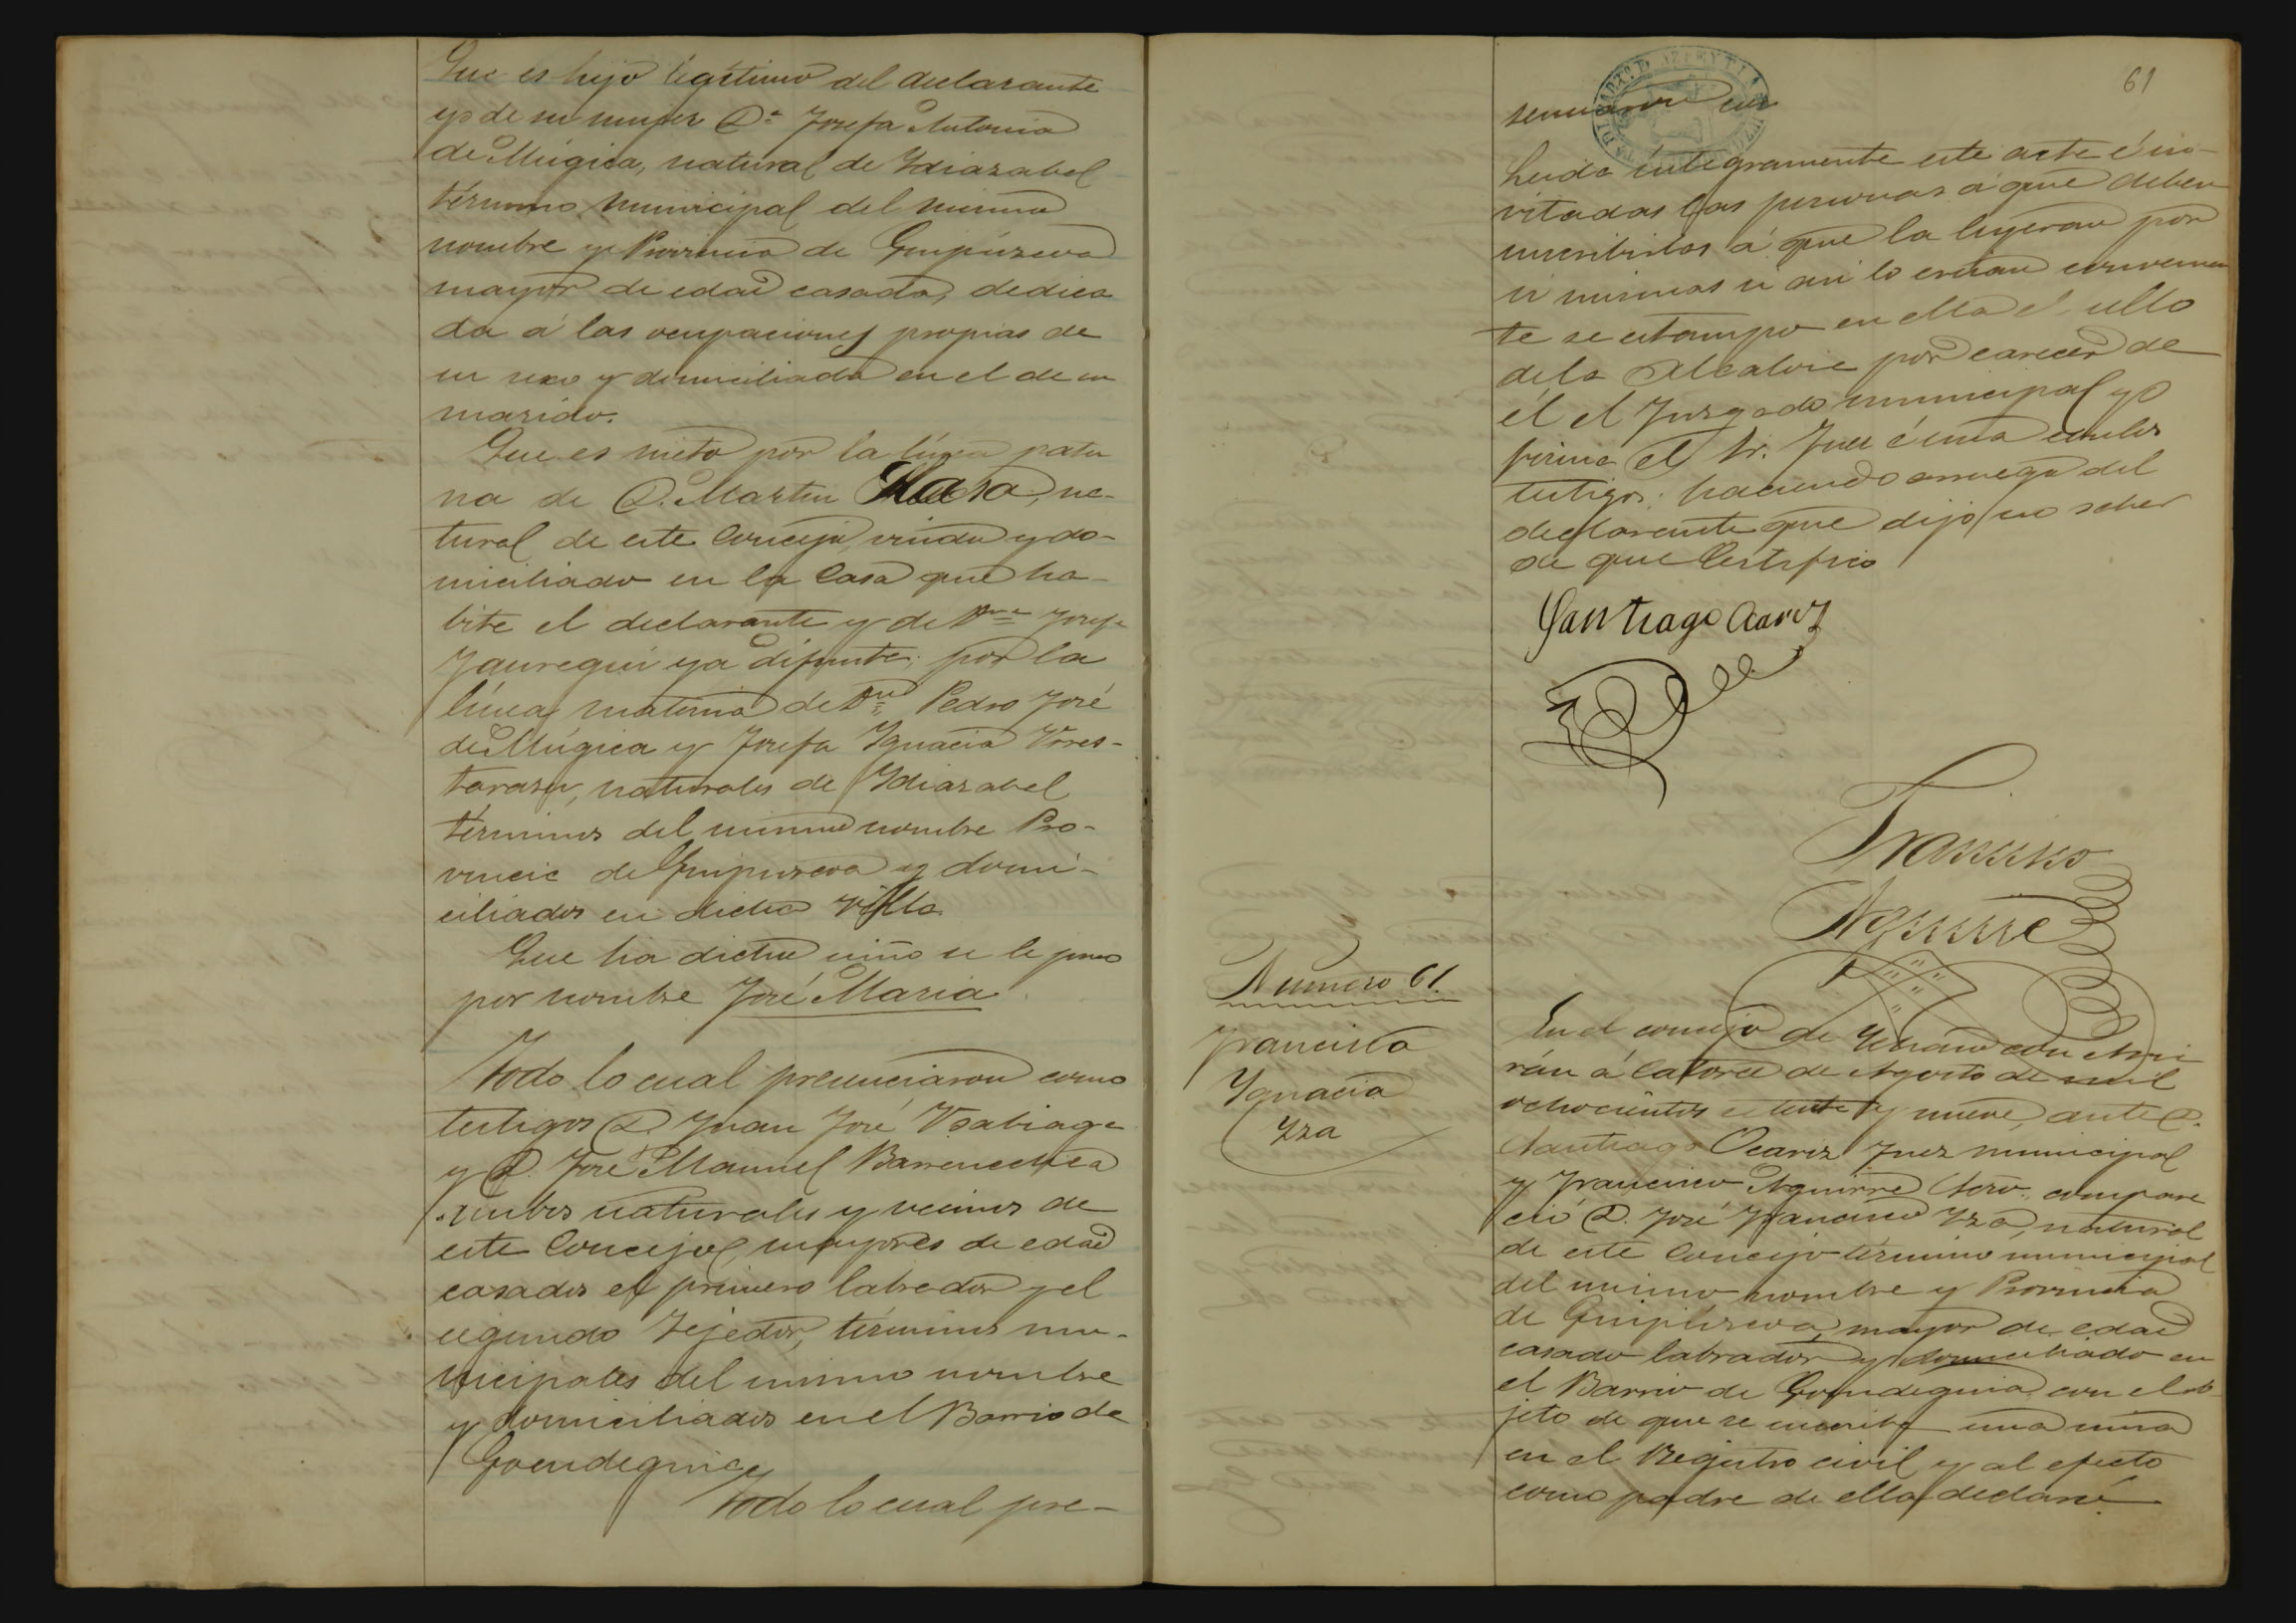 Que es hijo legítimo del declarante
y de su mujer D.ª Josefa Antonia
de Múgica, natural de Ydiazabal
término municipal del mismo
nombre y Provincia de Guipúzcoa
mayor de edad casada, dedica
da á las ocupaciones propias de
su sexo y domiciliada en el de su
marido.
Que es nieto por la línea pater
na de D. Martin na-
tural de este Concejo, viudo y do-
miciliado en la Casa que ha-
bita el declarante y de Josefa
Jauregui ya difunta; por la
línea materna de Pedro José
de Múgica y Josefa Ygnacia Urres-
tarazu, naturales de Ydiazabel
términos del mismo nombre Pro-
vincia de Guipuzcoa y domi-
ciliados en dicha Villa
Que ha dicho niño se le puso
por nombre José Maria
Todo lo cual presenciaron como
testigos D. Juan José Usabiaga
y D. José Manuel Barrenechea
ambos naturales y vecinos de
este Concejo, mayores de edad
casados el primero labrador y el
segundo Tejedor, términos mu-
nicipales del mismo nombre
y domiciliados en el Barrio de
Goendeguia
Todo lo cual pre-
61
Leida íntegramente este acta é in-
vitadas las personas á que deben
suscribirlas á que la leyeran por
si mismas si asi lo creian convenien
te se estampo en ella el sello
de la Alcaldia por carecer de
él el Juzgado municipal y
firma el Sr. Juez con los
testigos; haciendo á ruego del
declarante que dijo no saber
de que Certifico
Santiago Ocariz
Francisco
Aguirre
Numero 61.
Francisca
Ygnacia
Yza
En el concejo de
á Catorce de Agosto de mil
ochocientos setenta y nueve, ante D.
Santiago Ocariz Juez municipal
y Francisco Aguirre Srio. compare
ció D. José Francisco Yza, natural
de este Concejo término municipal
del mismo nombre y Provincia
de Guipúzcoa, mayor de edad
casado labrador y domiciliado en
el Barrio de Goendeguia con el ob
jeto de que se inscriba una niña
en el Registro civil y al efecto
como padre de ella declaró